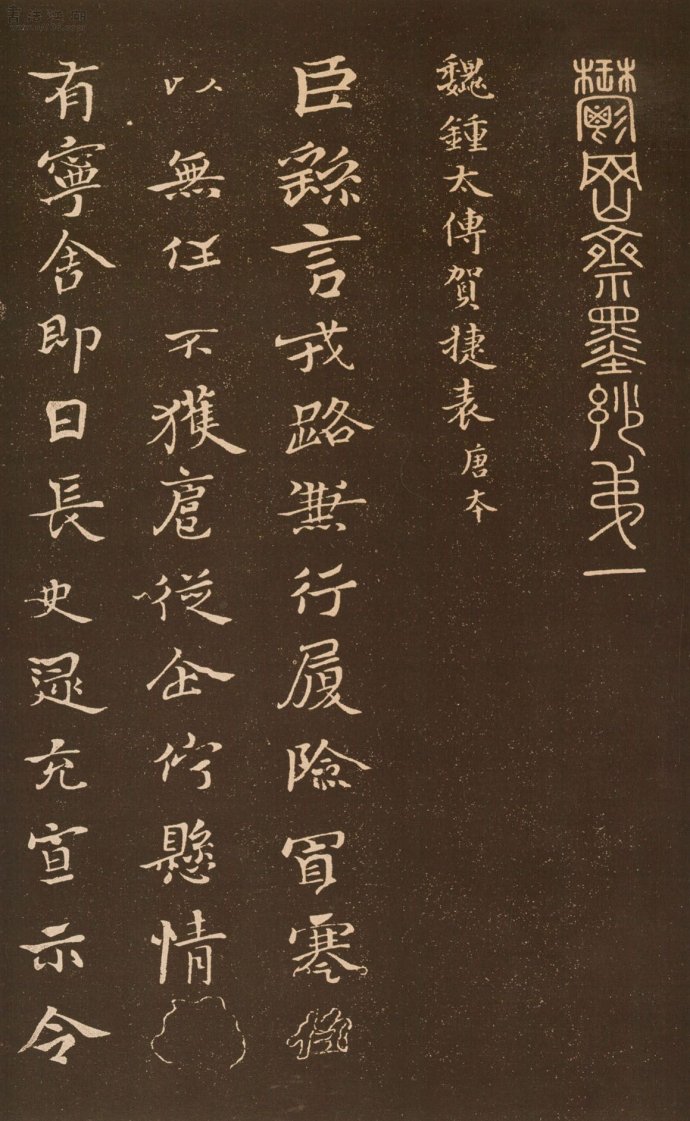 鬱岡齋墨妙弟一
魏鍾太傅賀捷表 唐夲
臣繇言戎路兼行履險冒寒
以無任不獲扈從企佇懸情
有寧舍即日長史逯充宣示令